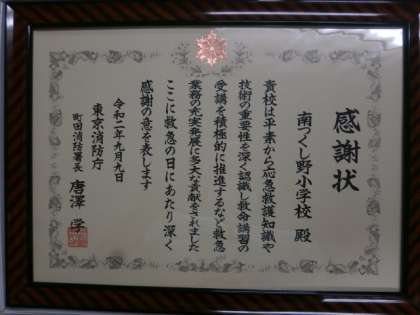 感謝状
南つくし野小学校 殿
貴校は平素から応急救護知識や
技術の重要性を深く認識し救命講習の
受講を積極的に推進するなど救急
業務の充実発展に多大な貢献をされました
ここに救急の日にあたり深く
感謝の意を表します
令和二年九月九日
東京消防庁
町田消防署長 唐澤 学